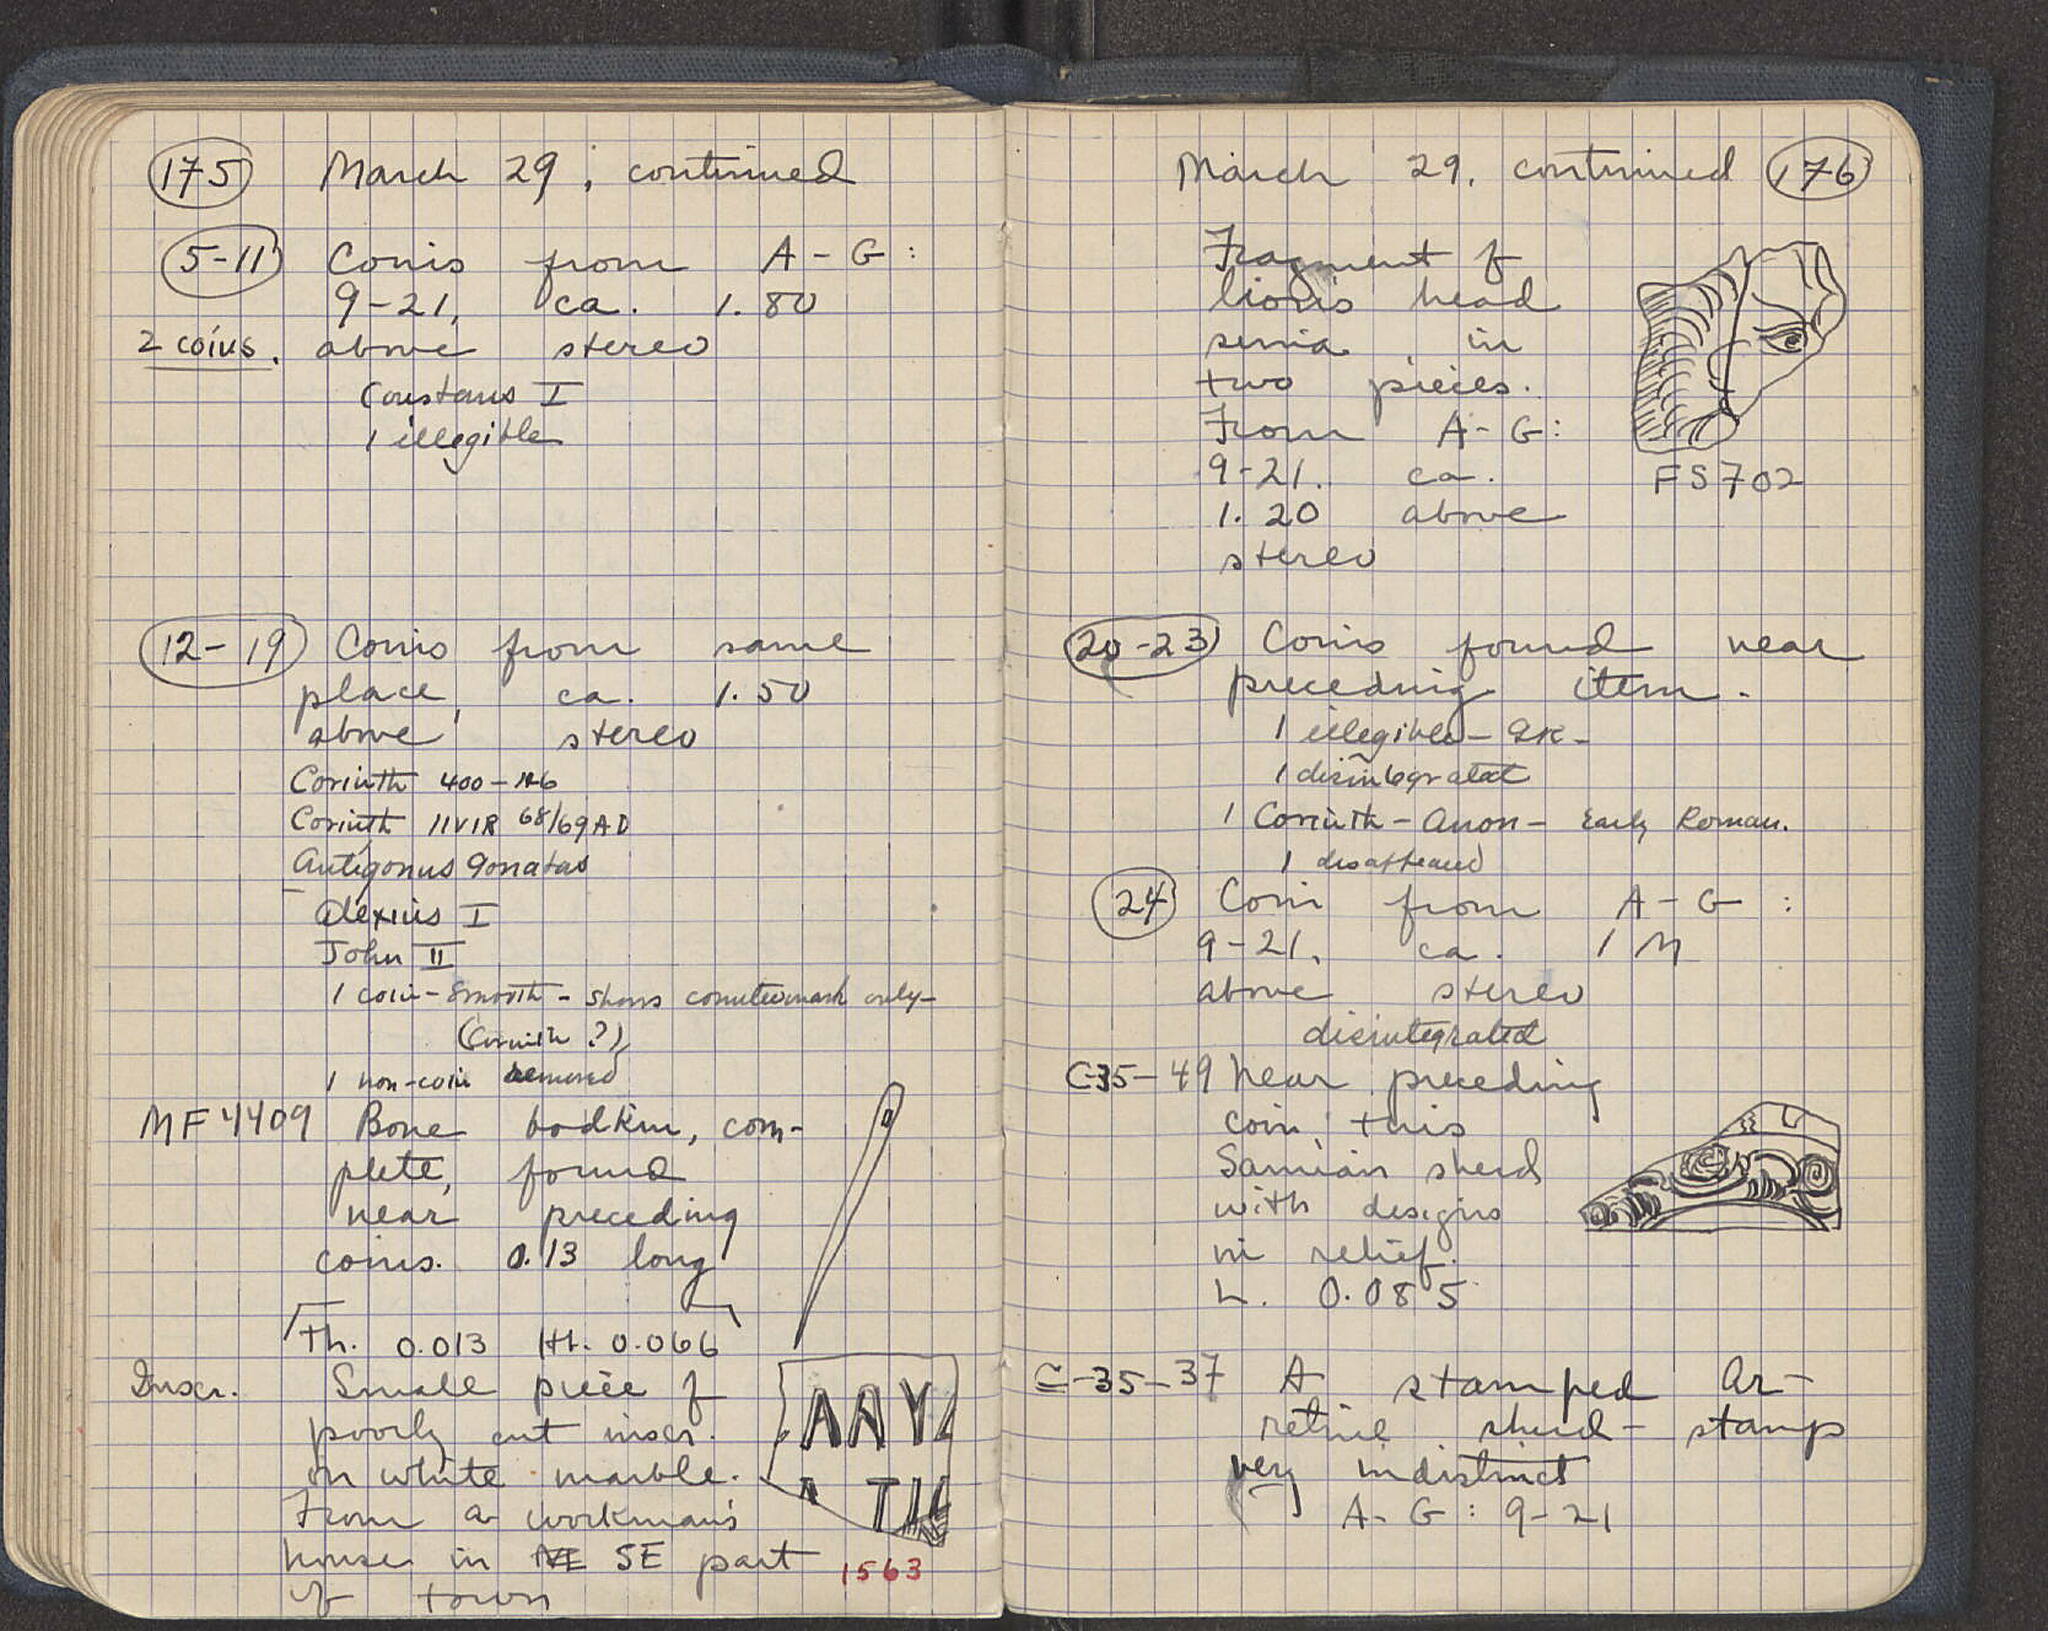 175 March 29, continued
5-11 Coins from A-G:
9-21, ca. 1.80
2 coins. above stereo
Constans I
1 illegible
12-19 Coins from same
place, ca. 1.50
above stereo
Corinth 400-146
Corinth IIVIR 68/69 AD
Antigonus Gonatas
Alexius I
John II
1 coin - smooth - shows countermark only -
(Corinth ?)
1 non-coin removed
MF 4409 Bone bodkin, com-
plete, found
near preceding
coins. 0.13 long
Th. 0.013 Ht. 0.066
Inscr. Small piece of
poorly cut inscr.
on white marble.
From a workman's
house in NE SE part
of town
AAYA
TH
1563
March 29, continued 176
Fragment of
lion's head
sima in
two pieces.
From A-G:
9-21. ca.
1.20 above
stereo
FS 702
20-23 Coins found near
preceding item.
1 illegible - GK -
1 disintegrated
1 Corinth - Anon - Early Roman.
1 disappeared
24 Coin from A-G:
9-21, ca. 1 M
above stereo
disintegrated
C-35-49 Near preceding
coin, this
Samian sherd
with designs
in relief.
L. 0.085
C-35-37 A stamped Ar-
retine sherd - stamp
very indistinct
A-G: 9-21